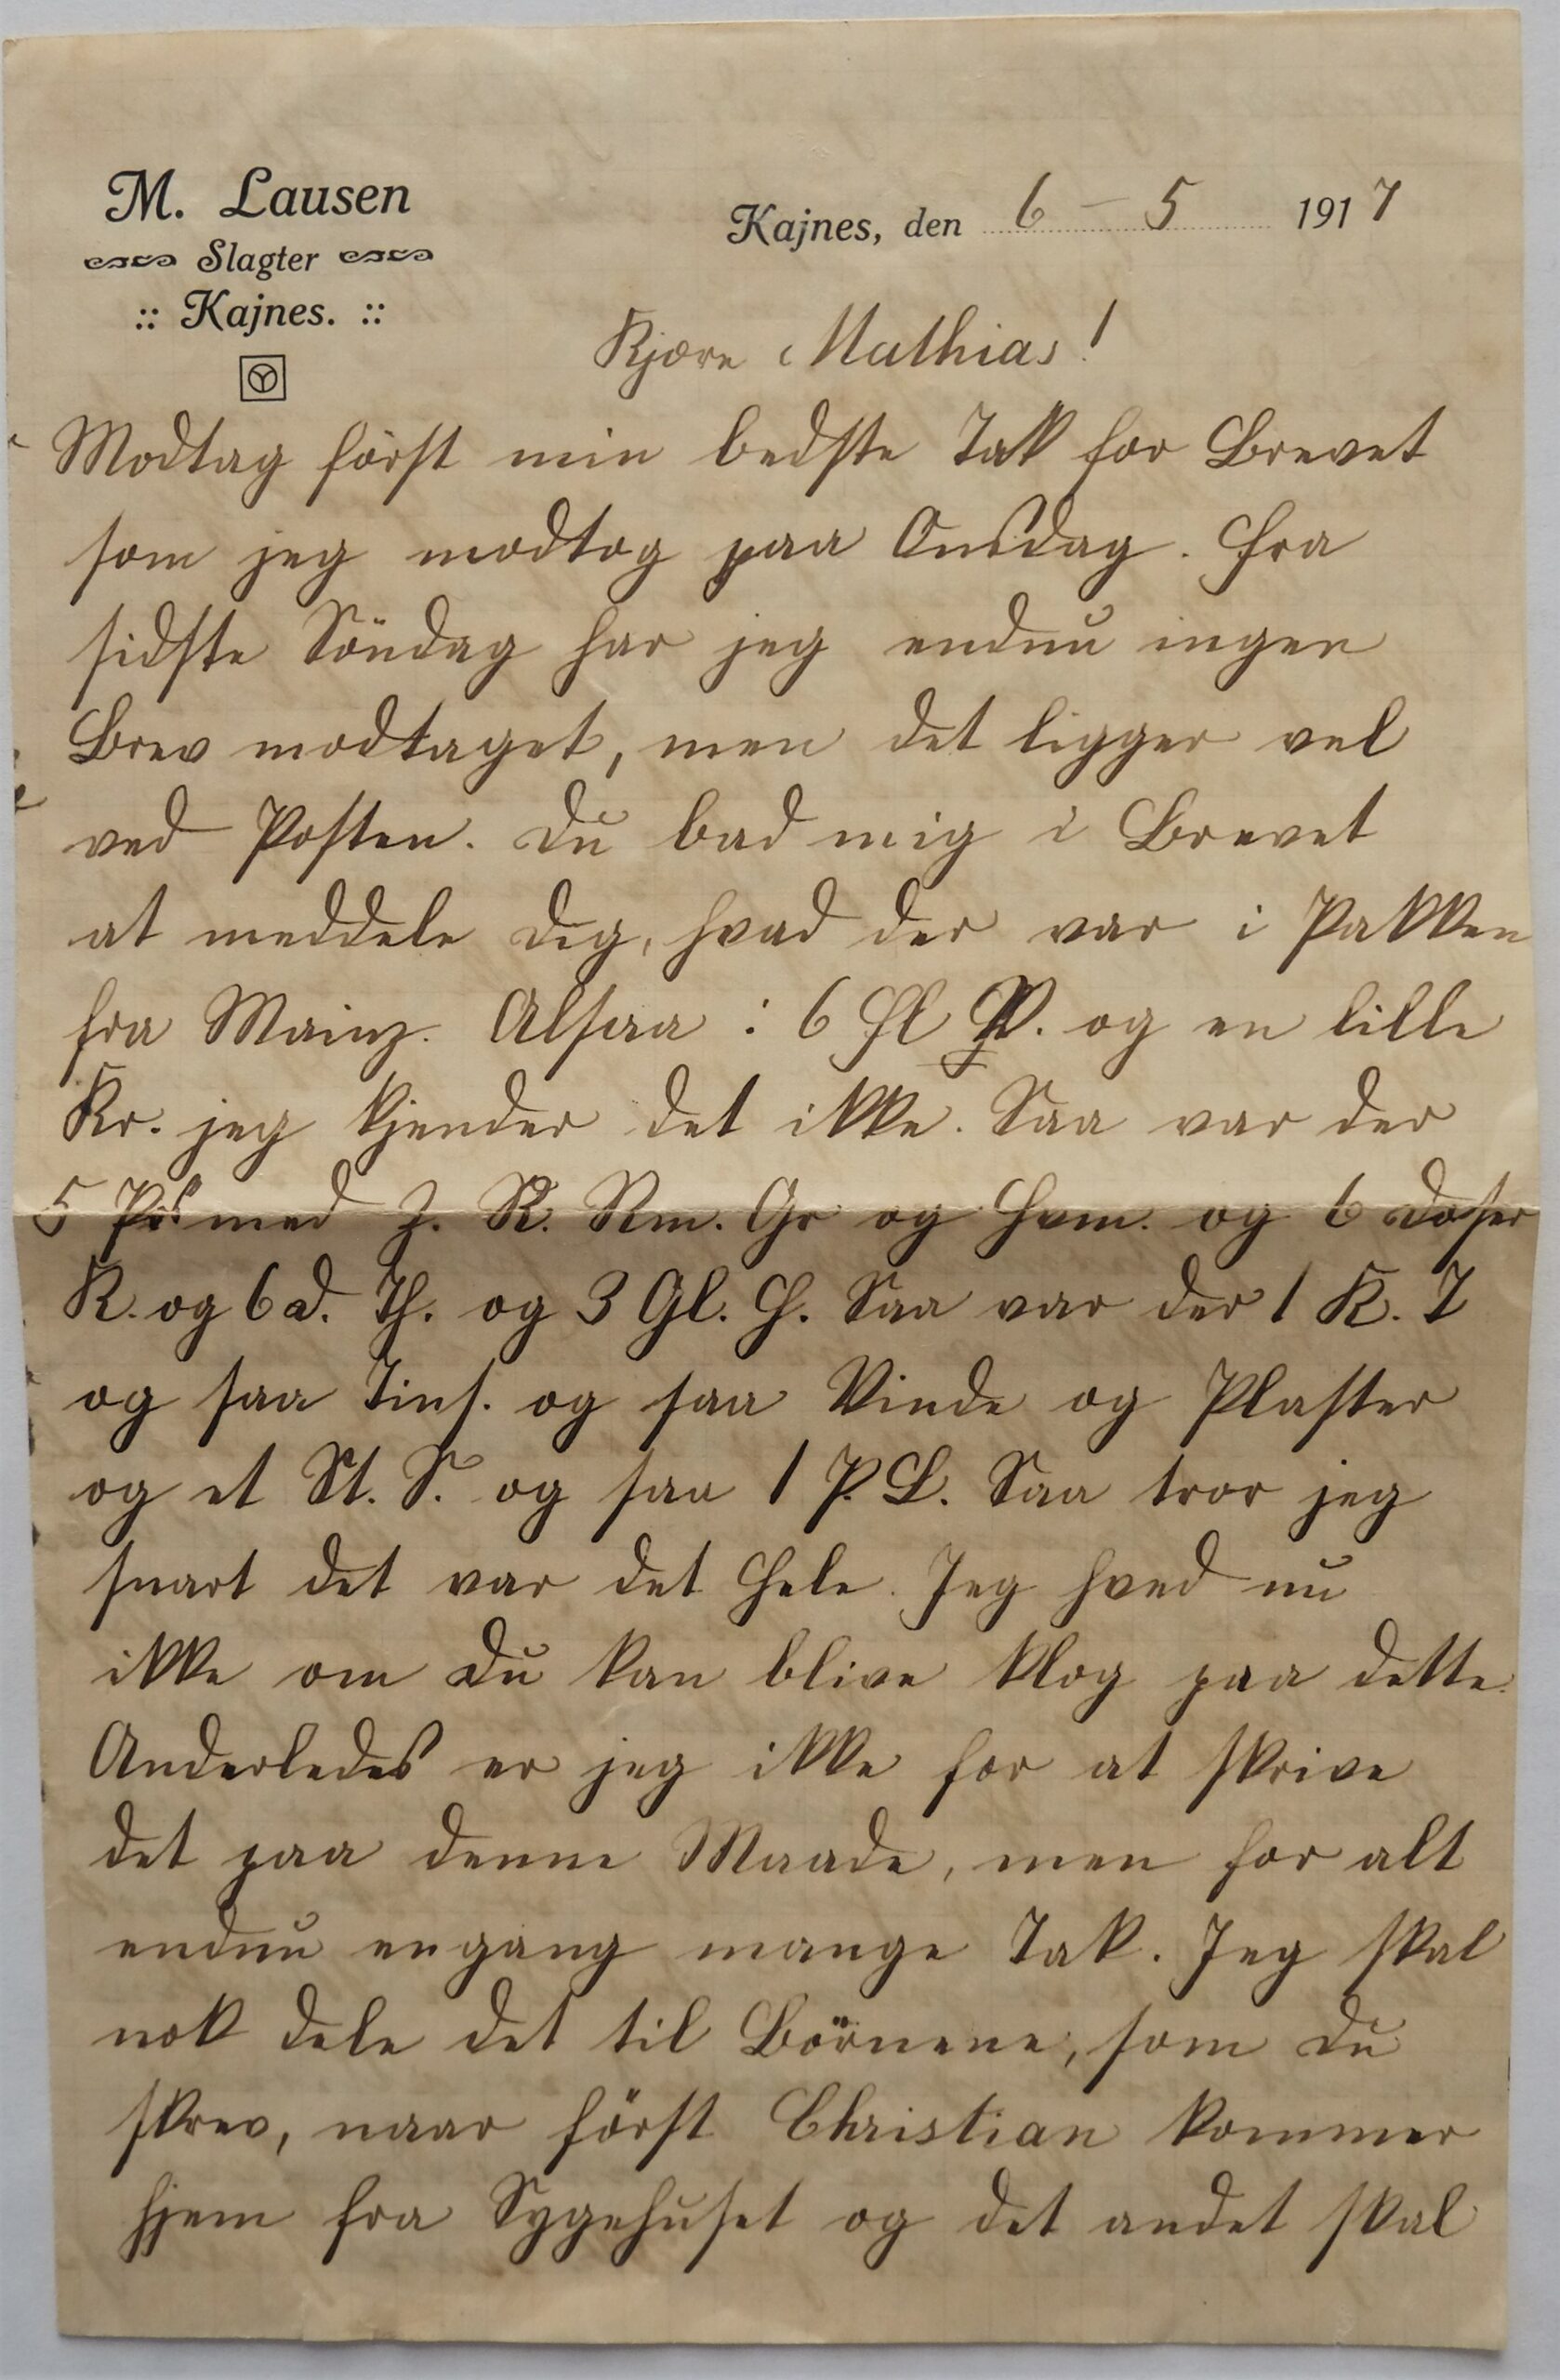 M. Lausen
Slagter
:: Kajnes. ::
Kajnes, den 6 - 5 1917
Kjære Mathias!
Modtag först min bedste Tak for Brevet
som jeg modtog paa Onsdag. Fra
sidste Söndag har jeg endnu ingen
Brev modtaget, men det ligger vel
ved Posten. Du bad mig i Brevet
at meddele Dig, hvad der var i Pakken
fra Mainz. Alsaa : 6 Fl P. og en lille
Kr. jeg kjender det ikke. Saa var der
5 med Z. R. Rm. Gr og Hvm. og 6 Doser
K. og 6 D. Th. og 3 Gl. H. Saa var der 1 K. T
og saa Tins. og saa Vinde og Plaster
og et St. S. og saa 1 P. L. Saa tror jeg
snart det var det Hele. Jeg hved nu
ikke om Du kan blive klog paa dette.
Anderledes er jeg ikke for at skrive
det paa denne Maade, men for alt
endnu engang mange Tak. Jeg skal
nok dele det til Börnene, som Du
skrev, naar först Christian kommer
hjem fra Sygehuset og det andet skal